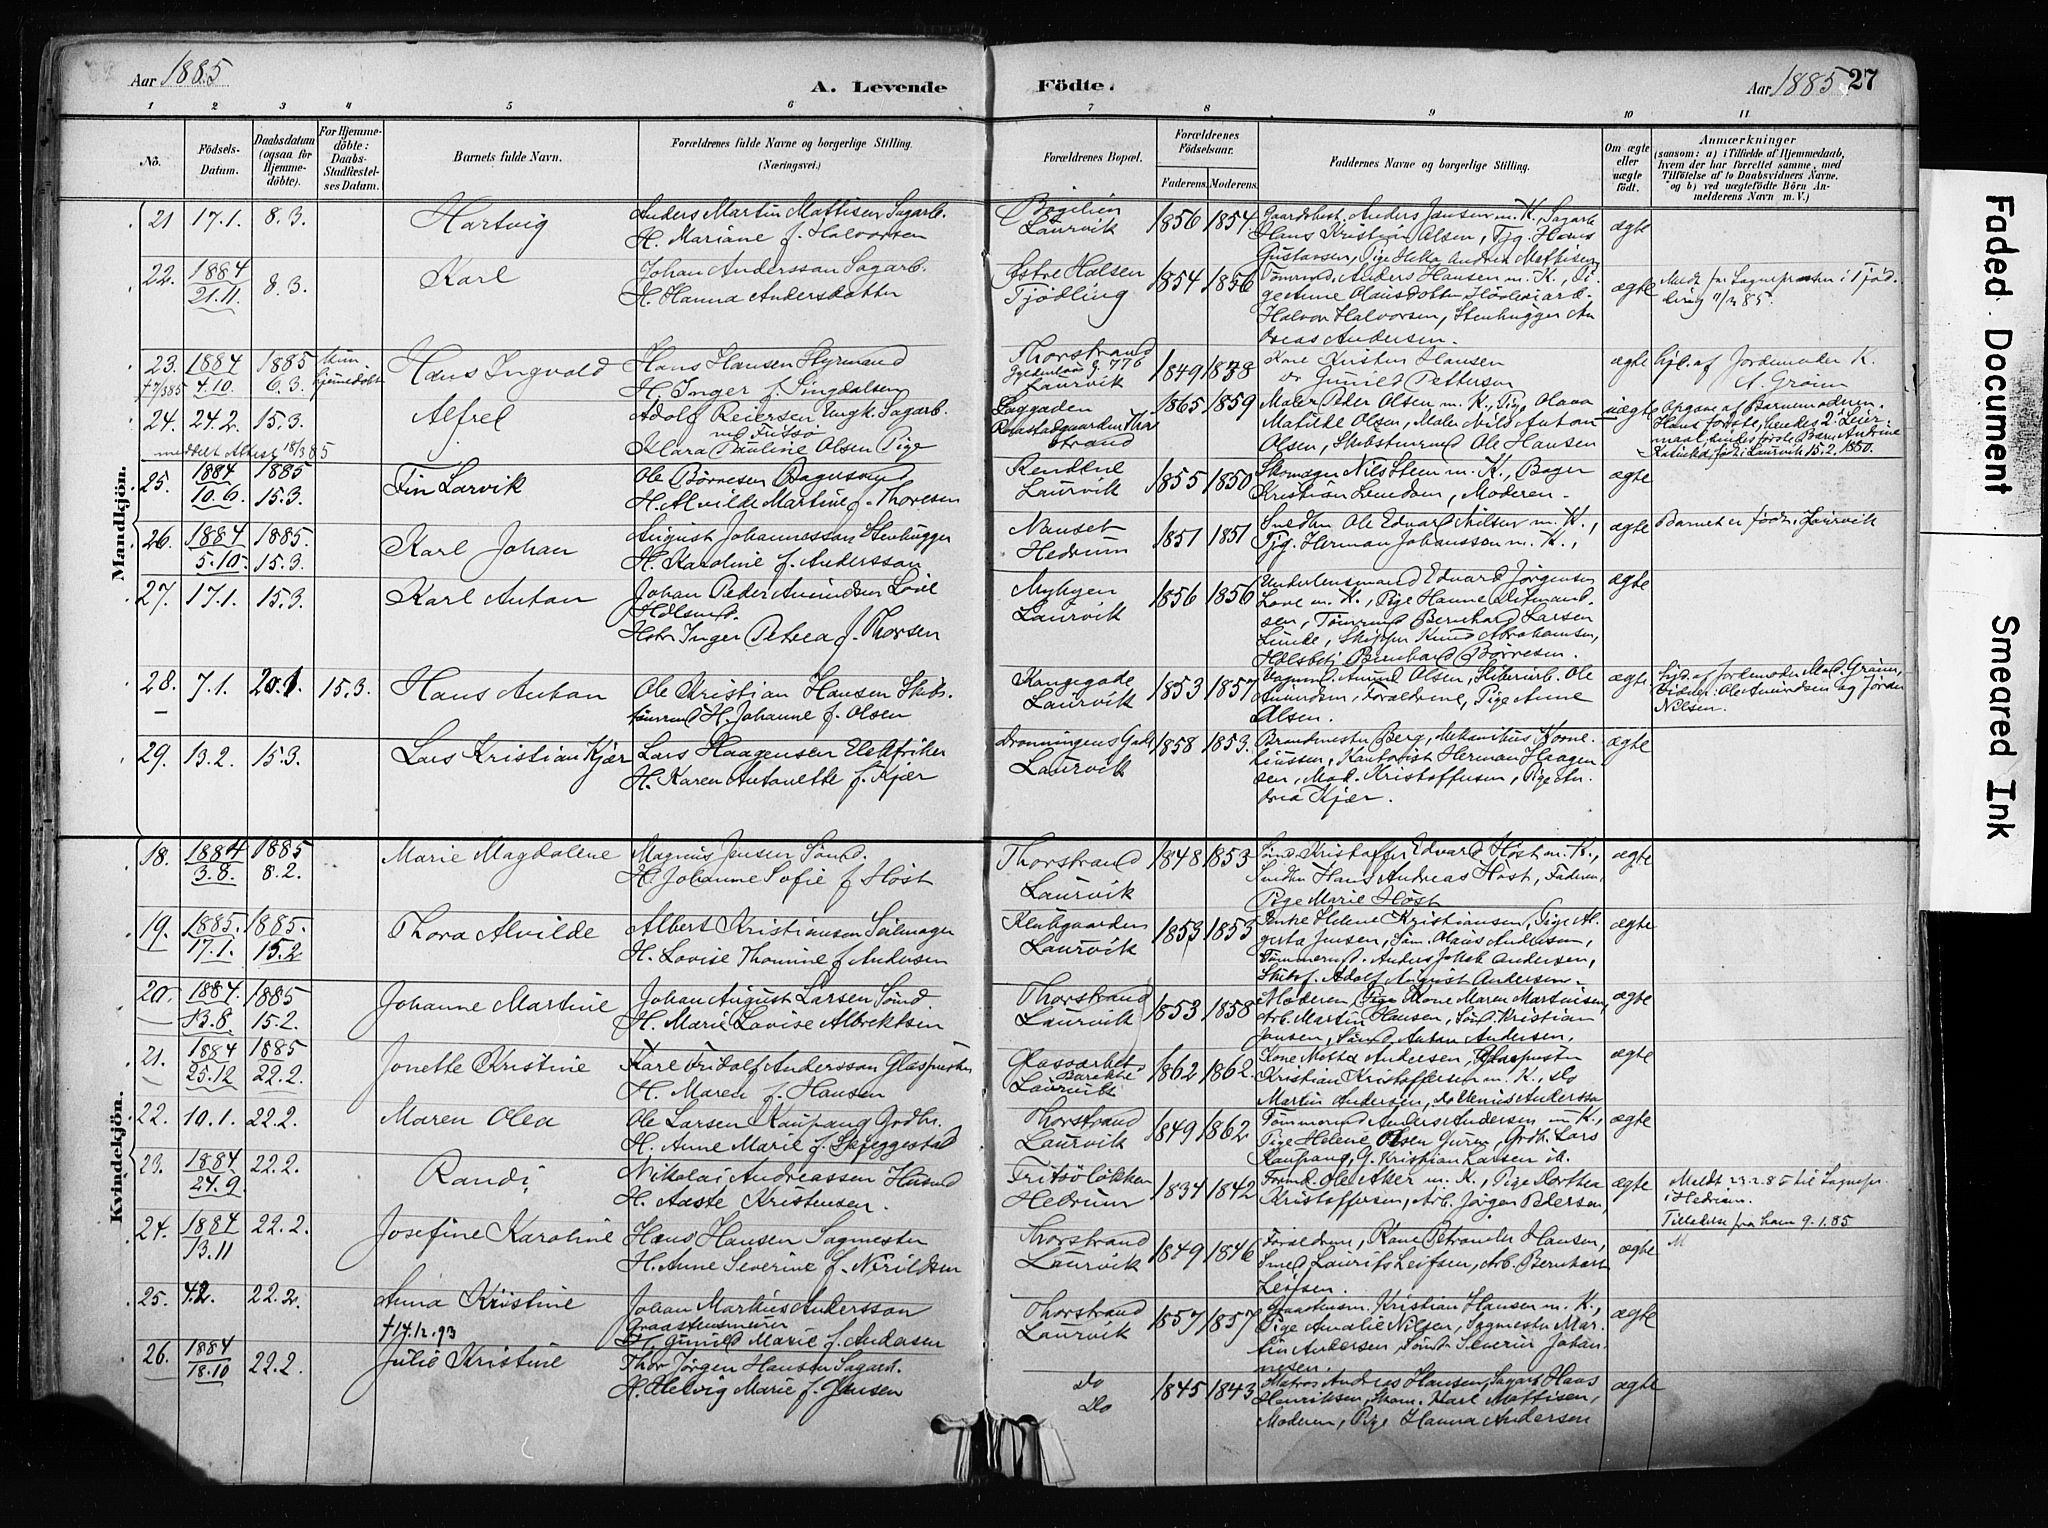 Aar 1885
A. Levende
Födte.
Aar 1885 27
1 2 3 4 5 6 7 8 9 10 11
No.
Födsels-
Datum.
Daabsdatum
(ogsaa for
Hjemme-
döbte).
For Hjemme-
döbte:
Daabs-
Stadfæstel-
ses Datum.
Barnets fulde Navn.
Forældrenes fulde Navne og borgerlige Stilling.
(Næringsvei.)
Forældrenes Bopæl.
Forældrenes
Födselsaar.
Faderens. Moderens.
Faddernes Navne og borgerlige Stilling.
Om ægte
eller
uægte
födt.
Anmærkninger
(sansom: a) i Tilfælde af Hjemmedaab,
hvem der har forrettet samme, med
Tilföielse af to Daabsvidners Navne.
og b) ved uægtefödte Börn An-
melderens Navn m. V.)
Mandkjön.
21 17.1. 8.3. Hartvig
Anders Martin Mattisen Sagarb.
H. Mariane f. Halvorsen
Laurvik
1856 1854
Gaardsbest. Anders Jansen m. K., Sagarb.
Hans Kristian Olsen, Tjg. Hans
Gustavsen, Pige Andrea Mattisen
ægte
22. 1884 21.11. 8.3. Karl
Johan Andersson Sagarb.
H. Hanna Andersdatter
Østre Halsen
Tjødling
1854 1856
Tömrmd. Anders Hansen m. K., Pi-
ge Anne Olausdotter
Halvor Halvorsen, Stenhugger An
dreas Andersen.
ægte
Meldt for Sognepresten i Tjød-
ling 11/3 85.
23. 1884 4.10. 1885 6.3.
hjemmedøbt
Hans Ingvald
Hans Hansen Styrmand
H. Inger f. Singdalsen
Thorstrand
Laurvik
1849 1838
Kone Kristen Hansen
do Gunild Pettersen
ægte
hjd. af Jordemoder K.
N. Grøinn
24. 24.2. 15.3. Alfrel
Adolf Reiersen Ungk. Sagarb.
ved Fritsø
Klara Pauline Olsen Pige
meddelt Attest 18/3 85
Laggaden
strand
1865 1859
Maler Peder Olsen m. K., Pige Olava
Matilde Olsen, Maler Nils Anton
Olsen, Skibstmmd Ole Hansen
uægte
Opgave af Barnemoderen.
Hans første, hendes 2. Leier-
maal, hendes første Barn Andrine
født i Laurvik 15.2.1880.
25. 1884 10.6. 1885 15.3. Fin Larvik
Ole Børresen Bagersvend
H. Alvilde Martine f. Thoresen
Laurvik
1855 1850
Skomager Nils Steen m. K., Bager
Kristian Lendom, Moderen.
ægte
26. 1884 5.10. 1885. 15.3. Karl Johan
August Johannesson Stenhugger
H. Karoline f. Andersson
Nanset
Hedrum
1851 1851
Snedker Ole Edvard Nilsen m. K.,
Tjg. Herman Johansson m. K.,
ægte
Barnet er født i Laurvik
27. 17.1. 15.3. Karl Anton
Johan Peder Amundsen Love
Hdlsmd.
Hstr Inger Petrea f. Thorsen
Myhgen
Laurvik
1856 1856
Underlensmand Edvard Jørgensen
Love m. K., Pige Hanne Ditmand-
sen, Tömrmd Bernhard Larsen
Linde, Skipper Knud Abrahamsen,
Hdlsbetj. Bernhard Börresen.
ægte
28. 7.1. 20.1 15.3. Hans Anton
Ole Kristian Hansen Skibs-
tömrmd H. Johanne f. Olsen
Kongegade
Laurvik
1853 1857
Vognmd. Amund Olsen, Skibsarb. Ole
Amundsen, Forældrene, Pige Anne
Olsen.
ægte
hjd. af Jordemoder Mad. Grøinn,
Vidner: Ole Amundsen og Jörden
Nilsen.
29. 13.2. 15.3. Lars Kristian Kjær
Lars Haagensen Elektriker
H. Karen Antonette f. Kjær
Dronningens Gade
Laurvik
1858 1853.
Brandmester Berg, Mekanikus Korne-
liussen, Kontorist Herman Haagen-
sen, Mad. Kristoffersen, Pige An-
drea Kjær.
ægte
Kvindekjön.
18. 1884 3.8. 1885 8.2. Marie Magdalene
Magnus Jensen Sömd.
H. Johanne Sofie f. Höst
Thorstrand
Laurvik
1848 1853
Sömd Kristoffer Edvard Höst m. K.,
Snedker Hans Andreas Höst, Faderen,
Pige Marie Höst
ægte
19. 1885. 17.1. 1885 15.2 Thora Alvilde
Albert Kristiansen Seilmager
H. Lovise Thomine f. Andersen
Klubgaarden
Laurvik
1853 1853
Enke Helene Kristiansen, Pige Al-
gerta Jensen, Söm. Olaus Andersen,
Tömmermd. Anders Jakob Andersen,
Skibsf. Adolf August Andersen.
ægte
20. 1884. 13.8 1885 15.2. Johanne Martine
Johan August Larsen Sömd.
H. Marie Lovise Albrektsen
Thorstrand
Laurvik
1853 1858
Moderen, Pige Mone Maren Martinsen,
Arb. Martin Hansen, Sömd. Kristian
Jansen, Sömd. Anton Andersen.
ægte
21. 1884 25.12 1885 22.2. Jonette Kristine
Karl Fridolf Andersson Glaspuster
H. Maren f. Hansen
Glassarbet.
Barakke
Laurvik
1862 1862.
Kone Matea Andersen, Glaspuster
Kristian Kristoffersen m. K., Do
Martin Andersen, Do Andersson
ægte
22. 10.1. 22.2. Maren Olea
Ole Larsen Kaupang Godbr.
H. Anne Marie f. Skjeggestad
Thorstrand
Laurvik
1849 1862
Tömmermd Anders Andersen m. K.,
Pige Helene Olsen Guren, Godb. Lars
Kaupang, G. Kristian Larsen ib.
ægte
23. 1884 24.9. 22.2. Randi
Nikolai Andreassen Husmd
H. Aaste Kristensen.
Fritsöløkken
Hedrum
1834 1842
Formd. Ole Aker m. K., Pige Dorthea
Kristoffersen, Arb. Jörgen Pedersen,
ægte
Meldt 23.2.85 til Sognepr.
i Hedrum.
Tilladelse fra ham 9.1.85
24. 1884 13.11 22.2. Josefine Karoline
Hans Hansen Sagmester
H. Anne Severine f. Nirildsen
Thorstrand
Laurvik
1849 1846
Forældrene, Kone Petrande Hansen,
Smed Laurits Leifsen, Arb. Bernhart
Leifsen.
ægte
25. 4.2. 22.2. Anna Kristine
†14.12.93
Johan Markus Andersson
Graastensmurer
H. Gunild Marie f. Andersen
Thorstrand
Laurvik
1857 1857
Graastensm. Kristian Hansen m. K.,
Pige Amalie Nilsen, Sagmester Mar-
tin Andersen, Sömd. Severin Johan-
nesen.
ægte
26. 1884 18.10 22.2. Julie Kristine
Thor Jörgen Hansen Sagarb.
H. Helvig Marie f. Jensen
Do
Do
1845 1843
Matros Andreas Hansen, Sagarb. Hans
Henriksen, Skom. Karl Mattisen,
Moderen, Pige Hanna Andersen
ægte
Faded Document
Smeared Ink